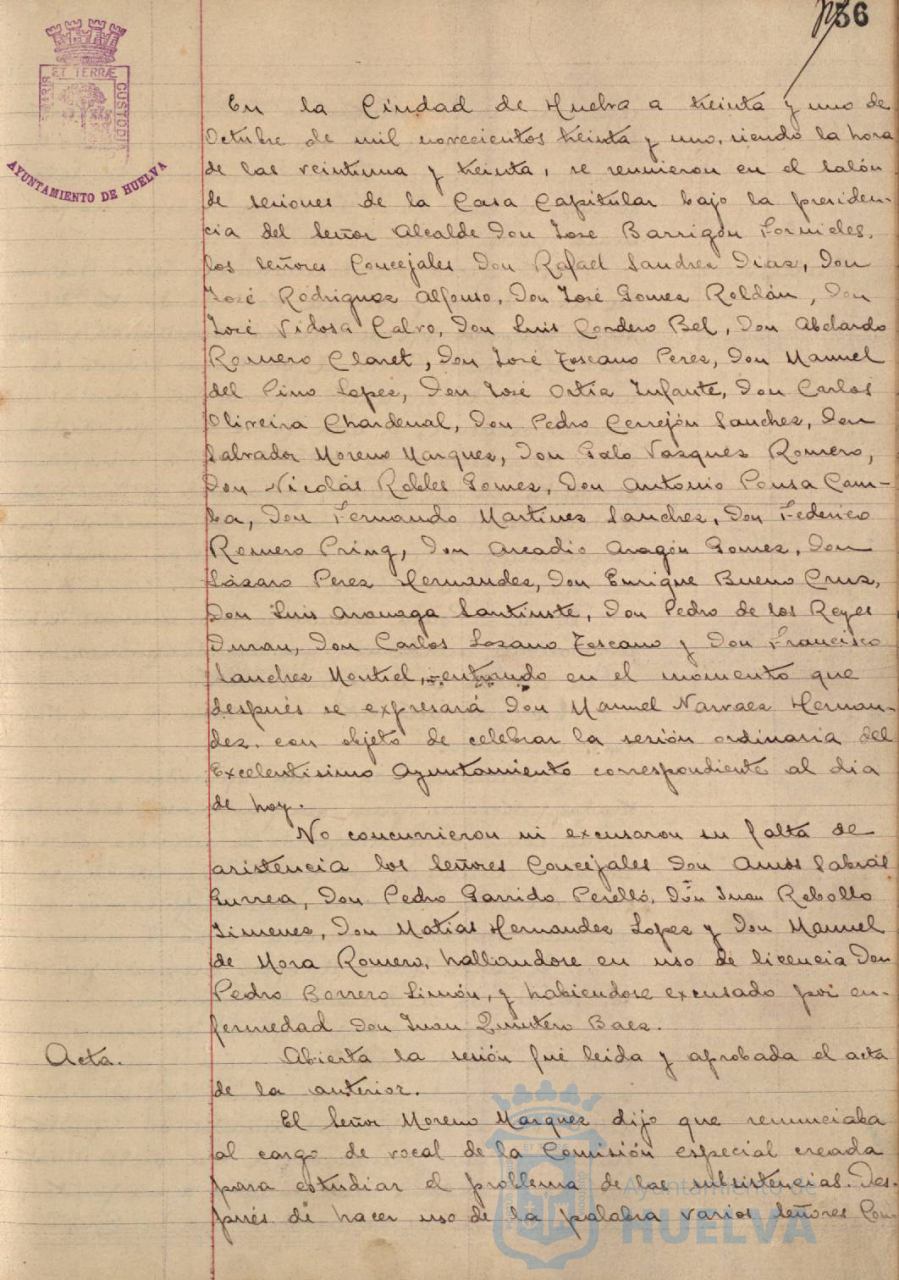 36
ET TERRÆ
MARIS
CUSTODIA
AYUNTAMIENTO DE HUELVA
En la Ciudad de Huelva a treinta y uno de
Octubre de mil novecientos treinta y uno, siendo la hora
de las veintiuna y treinta, se reunieron en el salón
de sesiones de la Casa Capitular bajo la presiden-
cia del Señor Alcalde Don José Barrigón Fornieles,
los Señores Concejales Don Rafael Sandrea Diaz, Don
José Rodriguez Alfonso, Don José Gomez Roldán, Don
José Vidosa Calvo, Don Luis Cordero Bel, Don Abelardo
Romero Claret, Don José Toscano Perez, Don Manuel
del Pino Lopez, Don José Ortiz Infante, Don Carlos
Oliveira Chardenal, Don Pedro Cerrejón Sanchez, Don
Salvador Moreno Marquez, Don Galo Vazquez Romero,
Don Nicolás Robles Gomez, Don Antonio Pousa Cam-
ba, Don Fernando Martinez Sanchez, Don Federico
Romero Pring, Don Arcadio Aragón Gomez, Don
Lázaro Perez Hernandez, Don Enrique Bueno Cruz,
Don Luis Aranaga Santiuste, Don Pedro de los Reyes
Duran, Don Carlos Lozano Toscano y Don Francisco
Sanchez Montiel, entrando en el momento que
después se expresará Don Manuel Narvaez Hernan-
dez, con objeto de celebrar la sesión ordinaria del
Excelentísimo Ayuntamiento correspondiente al dia
de hoy.
No concurrieron ni excusaron su falta de
asistencia los Señores Concejales Don Amós Sabrás
Gurrea, Don Pedro Garrido Perelló, Don Juan Rebollo
Jimenez, Don Matías Hernandez Lopez y Don Manuel
de Mora Romero, hallandose en uso de licencia Don
Pedro Borrero Limón, y habiendose excusado por en-
fermedad Don Juan Quintero Baez.
Acta.
Abierta la sesión fué leida y aprobada el acta
de la anterior.
El Señor Moreno Marquez dijo que renunciaba
al cargo de vocal de la Comisión especial creada
para estudiar el problema de las subsistencias. Des-
pués de hacer uso de la palabra varios Señores Con
Ayuntamiento de
HUELVA